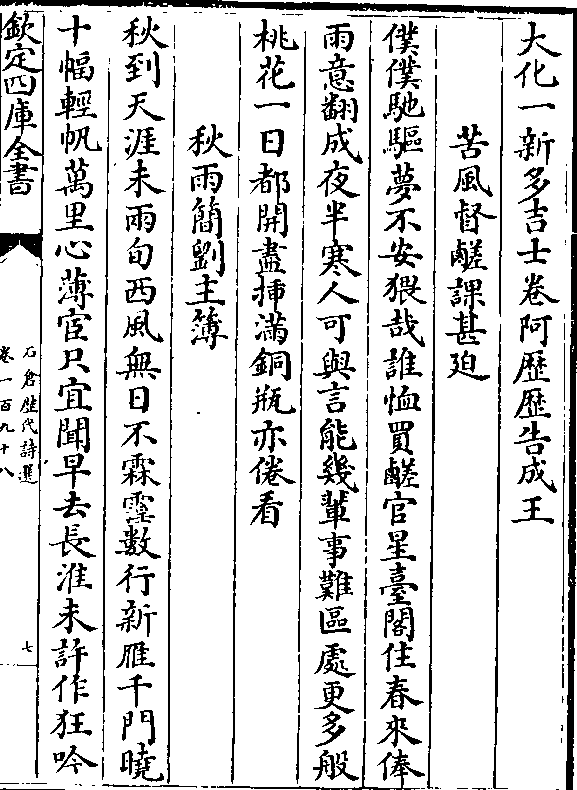 大化一新多吉士卷阿歷歷告成王
苦風督鹺課甚廹
僕僕馳驅夢不安猥哉誰恤買鹺官星臺閣住春來俸
雨意翻成夜半寒人可與言能幾輩事難區處更多般
桃花一日都開盡挿滿銅瓶亦倦看
秋雨簡劉主簿
秋到天涯未雨旬西風無日不霖霪數行新雁千門曉
十幅輕帆萬里心薄宦只宜聞早去長淮未許作狂吟
欽定四庫全書
石倉歷代詩選
卷一百九十八
七